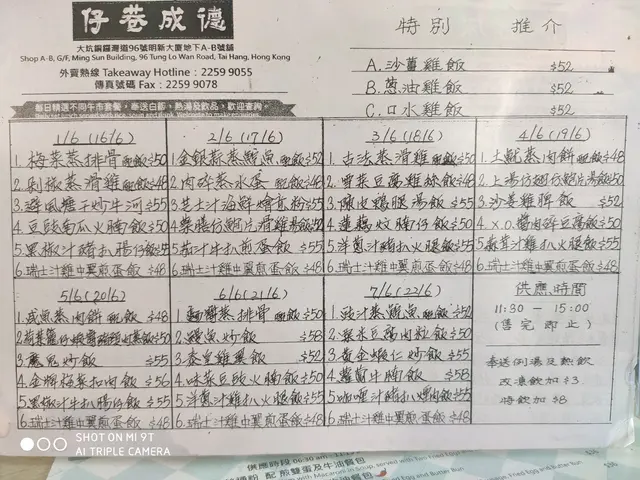 仔巷成德
大坑銅鑼灣道96號明新大廈地下A-B號舖
Shop A-B, G/F, Ming Sun Building, 96 Tung Lo Wan Road, Tai Hang, Hong Kong
外賣熱線 Takeaway Hotline : 2259 9055
傳真號碼 Fax : 2259 9078
特別 推介
A.沙薑雞飯 $52
B.蔥油雞飯 $52
C.口水雞飯 $52
每日精選不同午市套餐，奉送白飯、熱湯及飲品，歡迎查詢。
1/6 (16/6)
1.梅菜蒸排骨配飯$50
2.剁椒蒸滑雞配飯$48
3.避風塘干炒牛河$55
4.豆豉南瓜火腩飯$50
5.黑椒汁豬扒腸仔飯
6.瑞士汁雞中翼煎蛋飯$48
2/6 (17/6)
1.金銀蒜蒸鯇魚配飯$52
2.肉碎蒸水蛋配飯$48
3.芝士汁海鮮燴意粉$55
4.鮑片滑雞湯飯$52
5.茄汁牛扒煎蛋飯$55
6.瑞士汁雞中翼煎蛋飯$48
3/6 (18/6)
1.古法蒸滑雞配飯$48
2.雪菜豆腐雞絲飯$48
3.陳皮鴨腿湯飯$55
4.蓮藕炆腩仔飯$50
5.洋蔥汁豬扒火腿飯$55
6.瑞士汁雞中翼煎蛋飯$48
4/6 (19/6)
1.土魷蒸肉餅配飯$48
2.上湯仔翅鮑片湯飯$50
3.沙薑雞脾飯$55
4.X.O.醬肉碎豆腐飯$50
5.蘑茸汁豬扒火腿飯$55
6.瑞士汁雞中翼煎蛋飯$48
5/6 (20/6)
1.咸魚蒸肉餅配飯$48
飯$50
3.魔鬼炒飯 $55
4.金牌梅菜扣肉飯$56
5.黑椒汁牛扒腸仔飯$55
6.瑞士汁雞中翼煎蛋飯$48
6/6 (21/6)
1.麵醬蒸排骨配飯$50
2.鰻魚炒飯 $58
3.泰皇雞翼飯 $52
4.味菜豆豉火腩飯$50
5.洋蔥汁豬扒火腿飯$55
6.瑞士汁雞中翼煎蛋飯$48
7/6 (22/6)
1.豉汁蒸鯇魚配飯$52
2.粟米豆腐肉粒飯$50
3.黃金蝦仁炒飯$55
4.蘿蔔牛腩飯$58
5.咖哩汁豬扒煙肉飯$55
6.瑞士汁雞中翼煎蛋飯$48
供應時間
11:30 - 15:00
(售完即止)
奉送例湯及熱飲
改凍飲加$3
特飲加$8
SHOT ON MI 9T
AI TRIPLE CAMERA